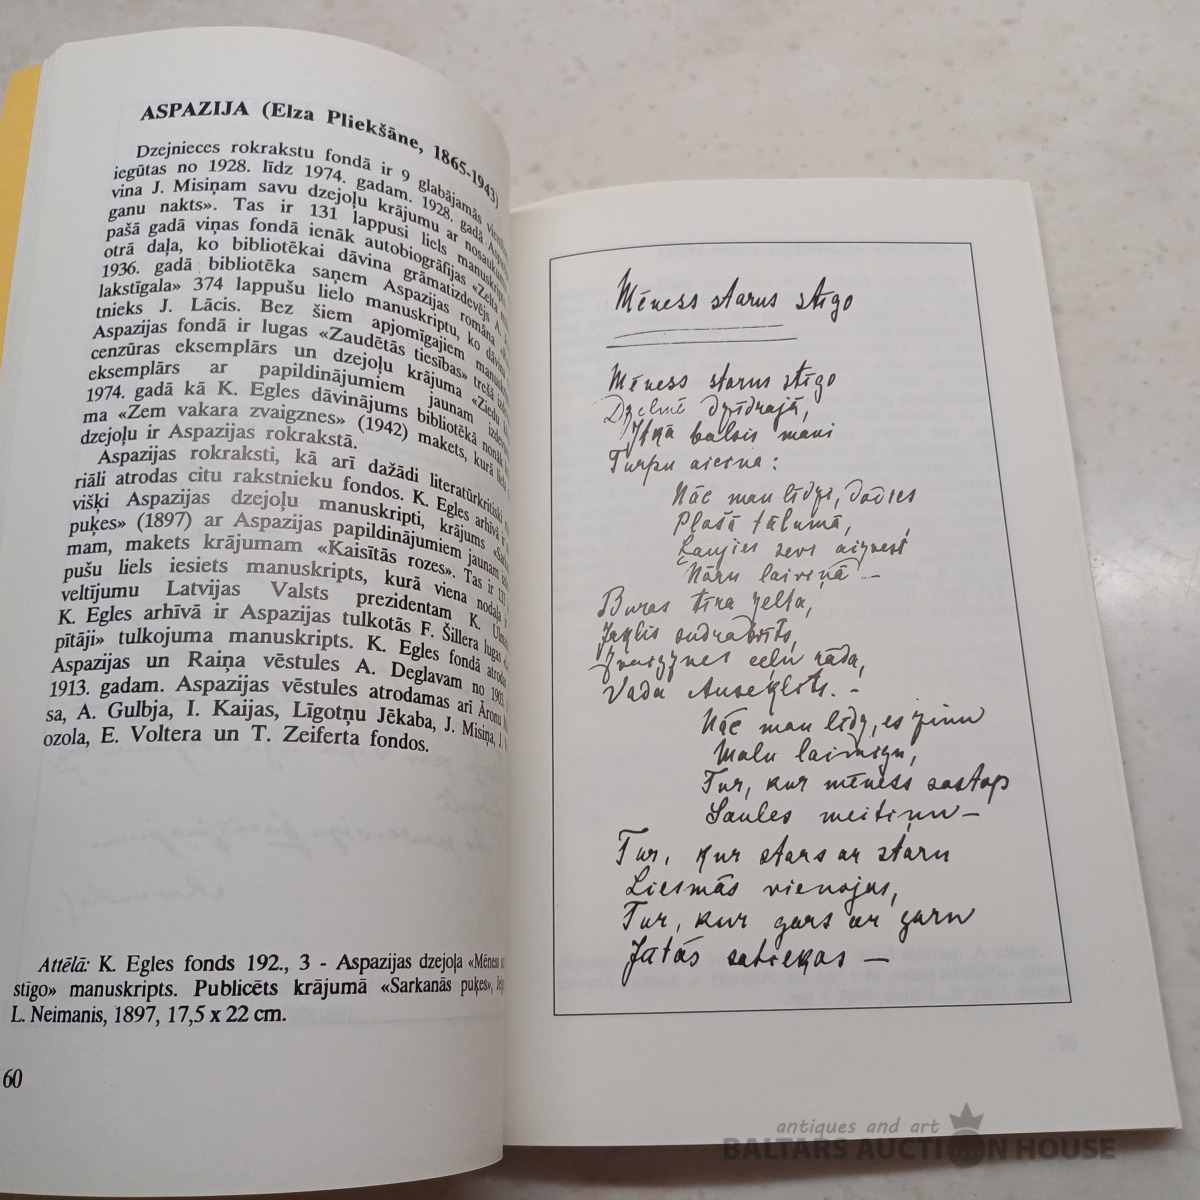 ASPAZIJA (Elza Pliekšāne, 1865-1943)
Dzejnieces rokrakstu fondā ir 9 glabājamās
iegūtas no 1928. līdz 1974. gadam. 1928. gadā
vina J. Misiņam savu dzejoļu krājumu ar
ganu nakts». Tas ir 131 lappusi liels
pašā gadā viņas fondā ienāk autobiogrāfijas «Zelta
otrā daļa, ko bibliotēkai dāvina grāmatizdevējs A.
1936. gadā bibliotēka saņem Aspazijas romāna
lakstīgala» 374 lappušu lielo manuskriptu, ko
tnieks J. Lācis. Bez šiem apjomīgajiem
Aspazijas fondā ir lugas «Zaudētās tiesības» trešā
cenzūras eksemplārs un dzejoļu krājuma «Ziedu
eksemplārs ar papildinājumiem jaunam
1974. gadā kā K. Egles dāvinājums bibliotēkā nonāk
ma «Zem vakara zvaigznes» (1942) makets, kurā
dzejoļu ir Aspazijas rokrakstā.
Aspazijas rokraksti, kā arī dažādi literatūrkritiski
riāli atrodas citu rakstnieku fondos. K. Egles arhīvā ir
višķi Aspazijas dzejoļu manuskripti, krājums
puķes» (1897) ar Aspazijas papildinājumiem jaunam
mam, makets krājumam «Kaisītās rozes». Tas ir
pušu liels iesiets manuskripts, kurā viena nodaļa
veltījumu Latvijas Valsts prezidentam K.
K. Egles arhīvā ir Aspazijas tulkotās F. Šillera lugas
pītāji» tulkojuma manuskripts. K. Egles fondā
Aspazijas un Raiņa vēstules A. Deglavam no
1913. gadam. Aspazijas vēstules atrodamas arī Āronu
sa, A. Gulbja, I. Kaijas, Līgotņu Jēkaba, J. Misiņa, J.
ozola, E. Voltera un T. Zeiferta fondos.
Attēlā: K. Egles fonds 192., 3 - Aspazijas dzejoļa «Mēness
stīgo» manuskripts. Publicēts krājumā «Sarkanās puķes»,
L. Neimanis, 1897, 17,5 x 22 cm.
60
Mēness starus stīgo
Mēness starus stīgo
Dzelmē dzīdrajā,
Itkā balsis mani
Turpu aicina:
Nāc man līdzi, dodies
Plašā tālumā,
Laujies sevi aiznest
Nāru laiviņā —
Buras tīra zelta,
sudrabots,
Zvaigznes ceļu rāda,
Vada Auseklīts. –
Nāc man līdz, es zinu
Malu laimīgu,
Tur, kur mēness sastop
Saules meitiņu —
Tur, kur stars ar staru
Liesmās vienojas,
Tur, kur gars ar garu
satiekas —
antiques and art
BALTARS AUCTION HOUSE